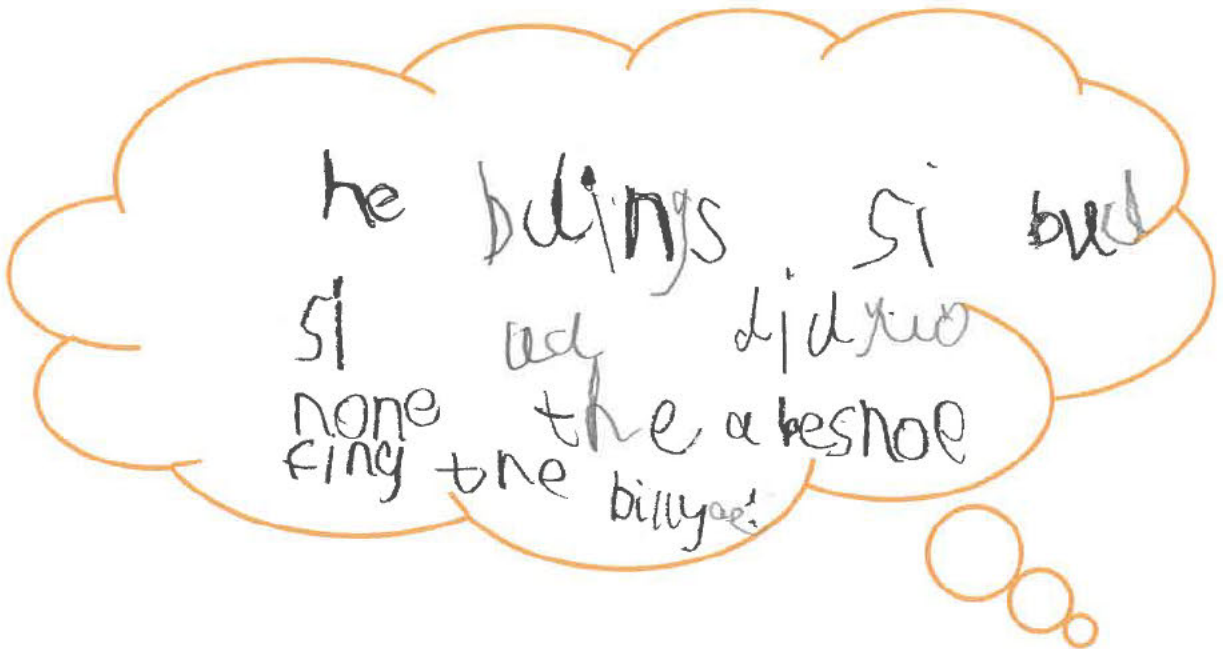 he bulings si bud
si ud
none the a besnoe
fing the billyoe!